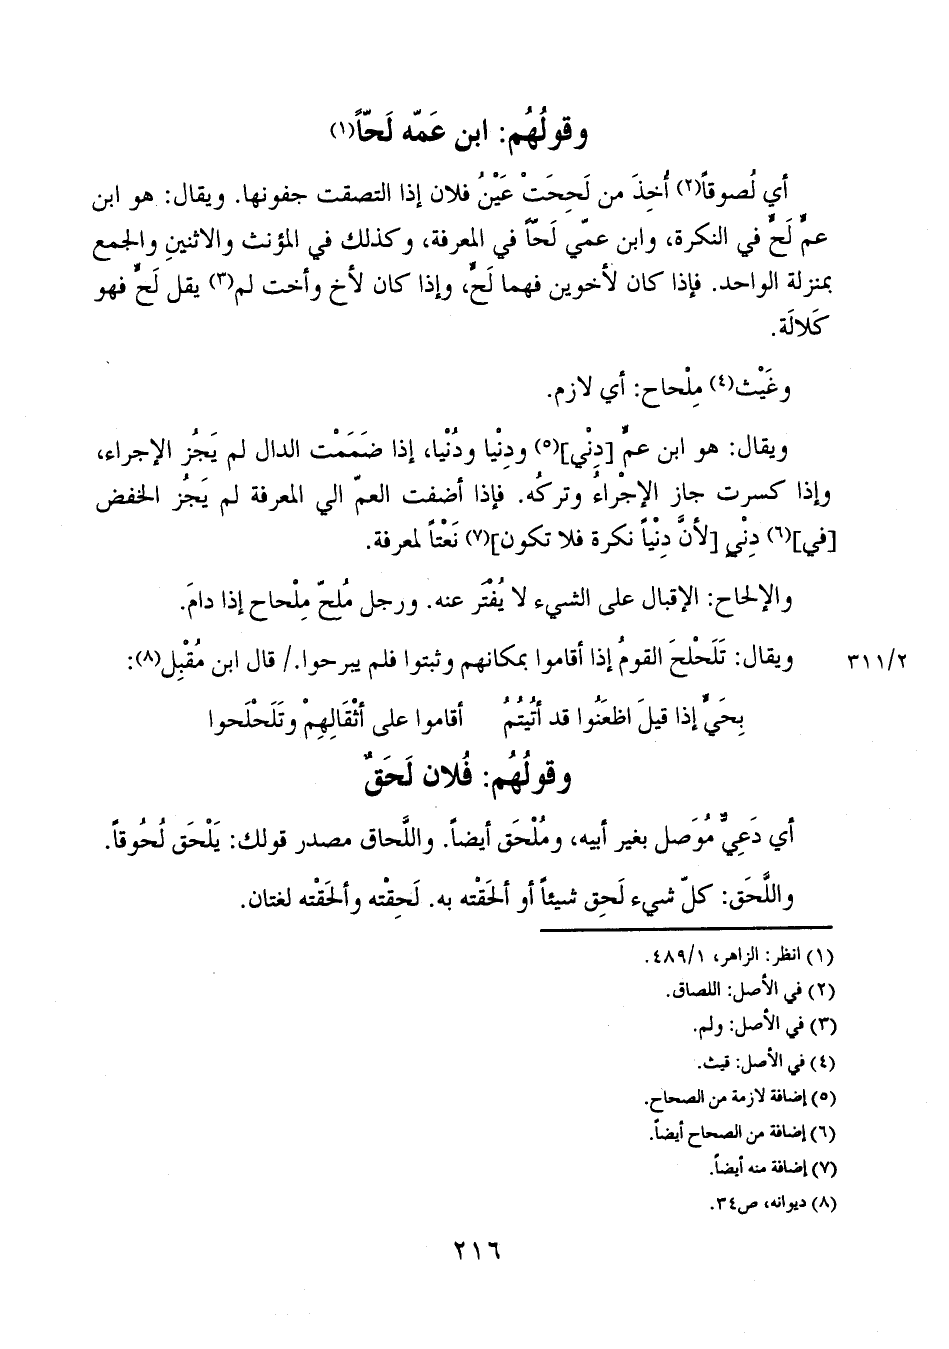 وقولُهُم: ابن عَمّه لَحّاً(١)
أي لُصوقاً(٢) أُخِذَ من لَحِحَتْ عَيْنُ فلان إذا التصقت جفونها. ويقال: هو ابن
عمٍّ لَحٍّ في النكرة، وابن عمّي لَحّاً في المعرفة، وكذلك في المؤنث والاثنين والجمع
بمنزلة الواحد. فإذا كان لأخوين فهما لَحٌّ، وإذا كان لأخ وأخت لم(٣) يقل لَحٌّ فهو
كَلالَة.
وغَيْث(٤) مِلْحاح: أي لازم.
ويقال: هو ابن عمٍّ [دِنْي](٥) ودِنْيا ودُنْيا، إذا ضَمَمْت الدال لم يَجُز الإجراء،
وإذا كسرت جاز الإجْراءُ وتركُه. فإذا أضفت العمّ الي المعرفة لم يَجُز الخفض
[في](٦) دِنْيٍ [لأنَّ دِنْياً نكرة فلا تكون](٧) نَعْتاً لمعرفة.
والإلحاح: الإقبال على الشيء لا يُفْتَر عنه. ورجل مُلِحّ مِلْحاح إذا دامَ.
ويقال: تَلَحْلَحَ القومُ إذا أقاموا بمكانهم وثبتوا فلم يبرحوا./ قال ابن مُقْبِل(٨): ٣١١/٢
بِحَيٍّ إذا قيلَ اظعَنُوا قد أُتِيتُمُ أقاموا على أثْقَالِهِمْ وتَلَحْلَحوا
وقولُهُم: فُلان لَحَقٌ
أي دَعِيٌّ مُوَصل بغير أبيه، ومُلْحَق أيضاً. واللَّحاق مصدر قولك: يَلْحَق لُحُوقاً.
واللَّحَق: كلّ شيء لَحِق شيئاً أو ألحَقْته به. لَحِقْته وألحَقْته لغتان.
(١) انظر: الزاهر، ٤٨٩/١.
(٢) في الأصل: اللصاق.
(٣) في الأصل: ولم.
(٤) في الأصل: قيث.
(٥) إضافة لازمة من الصحاح.
(٦) إضافة من الصحاح أيضاً.
(٧) إضافة منه أيضاً.
(٨) ديوانه، ص٣٤.
٢١٦